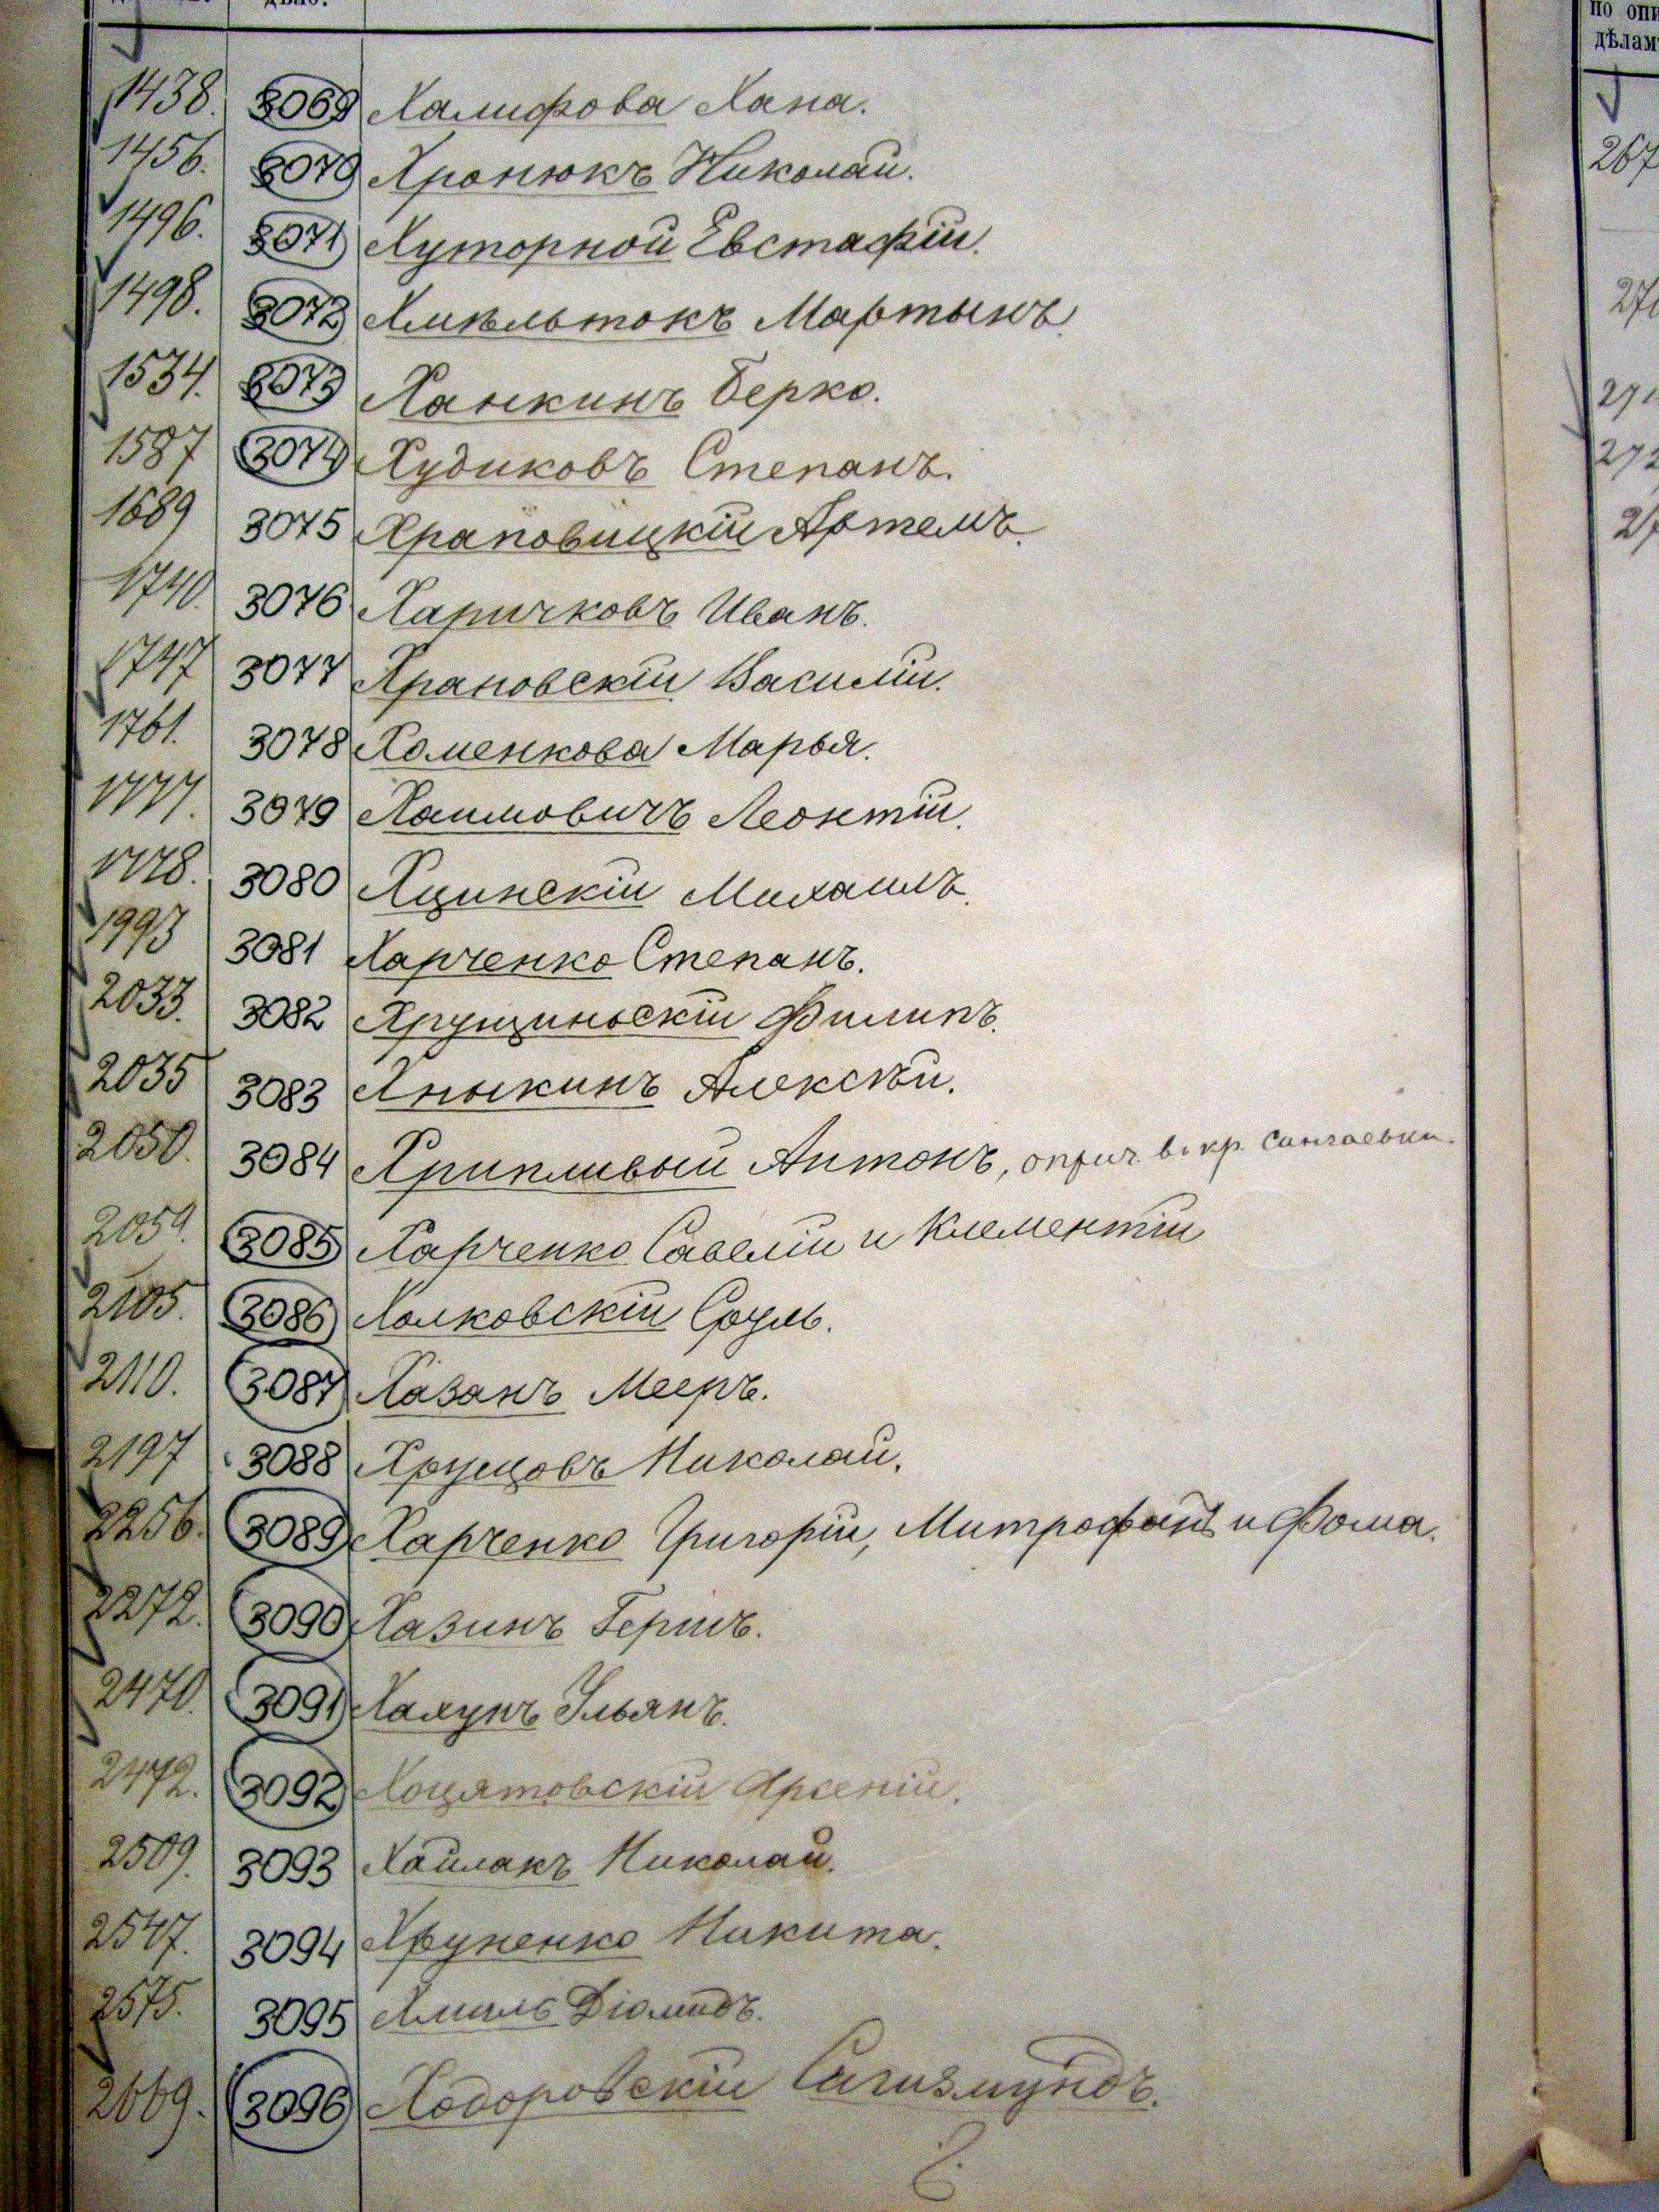 дѣло.
1438. 3069 Халифова Хана.
1456. 3070 Хронюкъ Николай.
1496. 3071 Хуторной Евстафій.
1498. 3072 Хмѣльтокъ Мартынъ
1534. 3073 Ханкинъ Берко.
1587 3074 Худиковъ Степанъ.
1689 3075 Храповицкій Артемъ.
1740. 3076 Харичковъ Иванъ.
1747 3077 Храновскій Василій.
1761. 3078 Хоменкова Марья.
1777. 3079 Хаимовичъ Леонтій.
1778. 3080 Хцинскій Михаилъ.
1993 3081 Харченко Степанъ.
2033. 3082 Хрущиньскій Филипъ.
2035 3083 Хныкинъ Алексѣй.
2050. 3084 Хрипливый Антонъ,
3085 Харченко Савелій и Клементій
2105. 3086 Холковскій Сруль.
2110. 3087 Хазанъ Мееръ.
2197 3088 Хрущовъ Николай.
2256. 3089 Харченко Григорій, Митрофанъ и Фома.
2272. 3090 Хазинъ Гершъ.
2470. 3091 Халунъ Ульянъ.
2472. 3092 Хоцятовскій Арсеній.
2509. 3093 Хайлакъ Николай.
2547. 3094 Хруненко Никита.
2575. 3095 Хмиль Діомидъ.
2669. 3096 Ходоровскій Сигизмундъ.
по опи
дѣлам
267